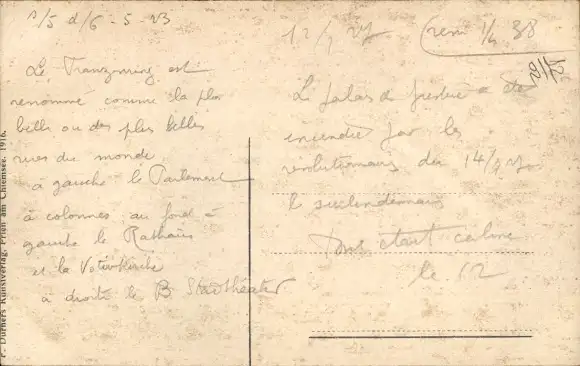 5/5 d/6 - 5 - 23
Le Franzensring est
renommé comme la plus
belle ou des plus belles
rues du monde
à gauche le Parlement
à colonnes, au fond à
gauche le Rathaus
et la Votivkirche
à droite le B Stadttheater
12/7 27
(remi 1/2 38
Le palais de justice a été
incendié par les
révolutionnaires du 14/7 27
le surlendemain
Tout était calme
le 12
P. Dörners Kunstverlag, Prien am Chiemsee. 1916.